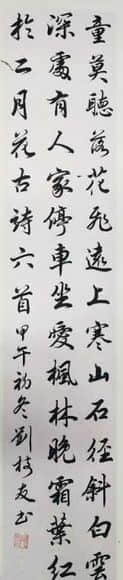 童莫聽落花飛遠上寒山石徑斜白雲
深處有人家停車坐愛楓林晚霜葉紅
於二月花古詩六首甲午初冬劉樹友書